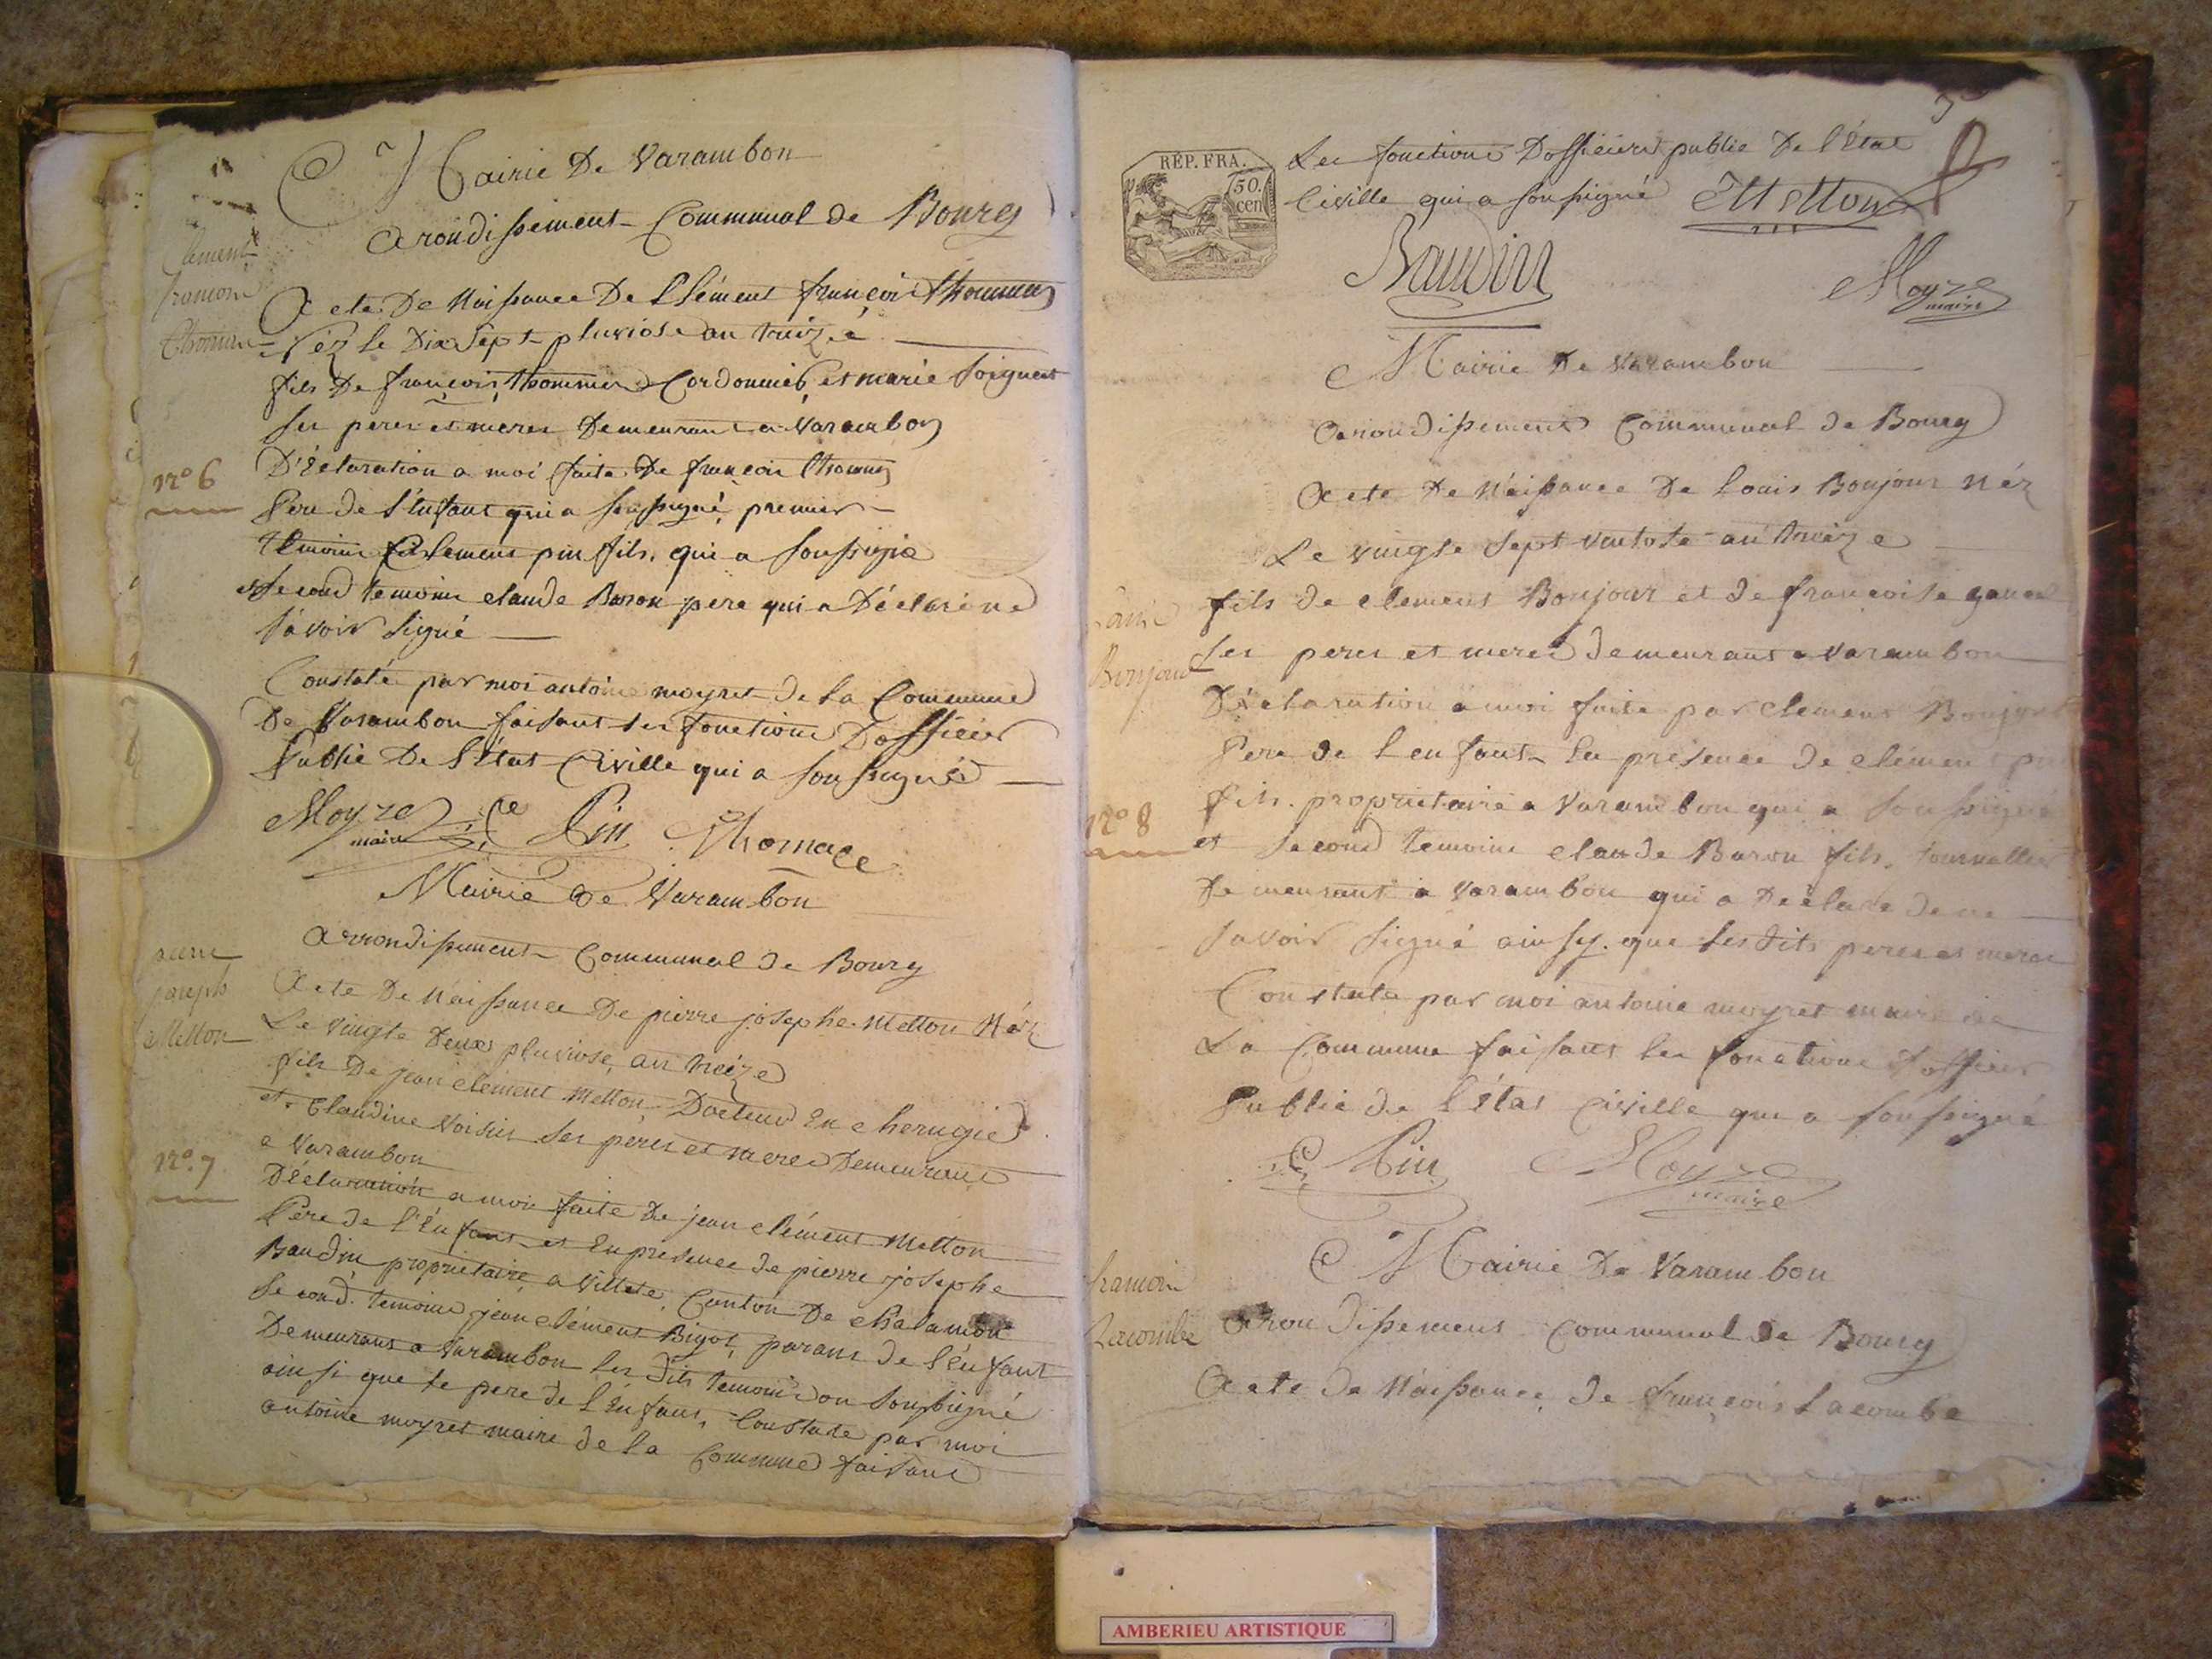 Mairie De Varambon
Arondissement Communal de Bourg
Clement
francoin
Thomm
Acte De Naissance De Clément françoi thommas
Néz le Dix Sept pluviose an treize
fils De françois thommes Cordonnié, et marie Soignet
Ses peres et meres Demeurant a Varambon
n° 6
Déclaration a moi faite De françoi thommas
Pere de l'Enfant qui a soussigné, premier
temoins Clement pin fils, qui a soussigné
et second temoins claude Baron pere qui a Déclaré ne
savoir signé
Constaté par moi antoine moyret de la Commune
De Varambon faisant les fonctions Dofficier
Public De l'État Civille qui a soussigné
Moyret maire Ce Pin Thomace
Mairie De Varambon
arrondissement Communal de Bourg
pierre
joseph
Metton
Acte De Naissance De pierre josephe Metton Néz
Le vingte Deux pluviose, an treize
fils De jean clement Metton Docteur En cherugie
et Claudine Voisin Ses péres et meres Demeurant
a Varambon
n° 7
Déclaration a moi faite De jean clément Metton
Pére de l'Enfant et En presence de pierre josephe
Baudin propriétaire, a Villete, Canton De chalamon
Second temoins jean clément Bigot, parans de l'énfant
Demeurant a Varambon les dits temoins on soussigné
ainsi que le pere de l'énfant, Constate par moi
antoine moyret maire de la Commune faisant
REP. FRA.
50. cen
Les fonctions Dofficiers public De l'État
Civille qui a soussigné Metton
Baudin Moyret maire
Mairie De Varambon
Arrondissement Communal de Bourg
Acte De Naissance De Louis Bonjour Néz
Le vingte Sept vantose an treize
Louis
Bonjour
fils de clement Bonjour et de francoise
Ses peres et meres demeurant a Varambon
Déclaration a moi faite par clement Bonjour
Pere de l'enfant En présence de clément pin
n° 8
fils. propriétaire a Varambon qui a soussigné
et second temoins claude Baron fils, journallier
Demeurant a Varambon qui a Déclaré de ne
savoir signé ainsy que les dits peres et meres
Constate par moi antoine moyret maire de
La Commune faisant les fonctions dofficier
Public de l'état Civille qui a soussigné
Ce Pin Moyret maire
Mairie De Varambon
francoin
Lacombe
Arondissement Communal de Bourg
Acte de Naissance, de françois Lacombe
AMBERIEU ARTISTIQUE